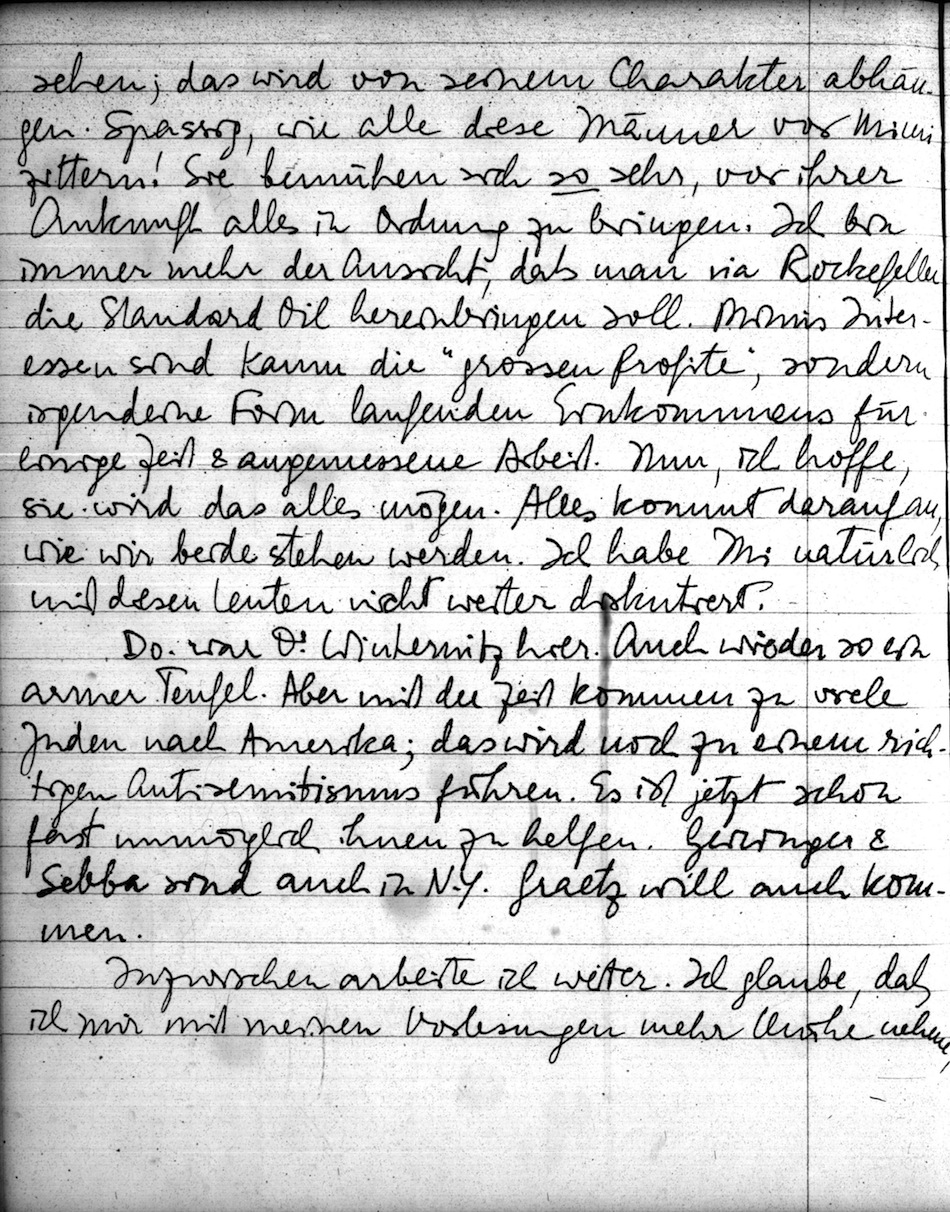 sehen; das wird von seinem Charakter abhän-
gen. Spassig, wie alle diese Männer vor Mimi
zittern! Sie bemühen sich so sehr, vor ihrer
Ankunft alles in Ordnung zu bringen. Ich bin
immer mehr der Ansicht, daß man via Rockefeller
die Standard Oil hereinbringen soll. Mimis Inter-
essen sind kaum die "grossen Profite", sondern
irgendeine Form laufenden Einkommens für
einige Zeit & angemessene Arbeit. Nun, ich hoffe,
sie wird das alles mögen. Alles kommt darauf an,
wie wir beide stehen werden. Ich habe Mi natürlich
mit diesen Leuten nicht weiter diskutiert.
Do. war Dr Winternitz hier. Auch wieder so ein
armer Teufel. Aber mit der Zeit kommen zu viele
Juden nach Amerika; das wird noch zu einem rich-
tigen Antisemitismus führen. Es ist jetzt schon
fast unmöglich ihnen zu helfen. Geiringer &
Sebba sind auch in N.Y. Graetz will auch kom-
men.
Inzwischen arbeite ich weiter. Ich glaube, daß
ich mir mit meinen Vorlesungen mehr Mühe nehme,